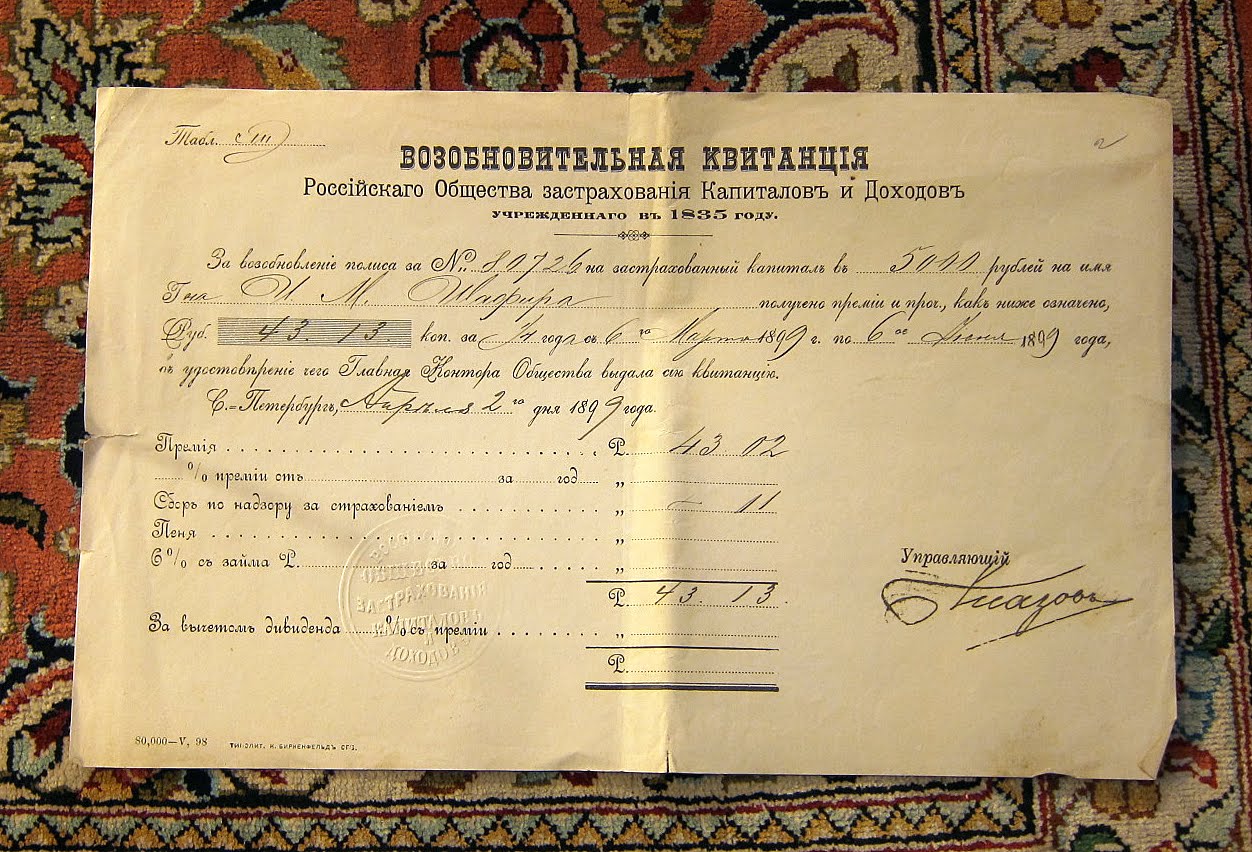 Табл. III
ВОЗОБНОВИТЕЛЬНАЯ КВИТАНЦІЯ
Россійскаго Общества застрахованія Капиталовъ и Доходовъ
УЧРЕЖДЕННАГО ВЪ 1835 ГОДУ.
За возобновленіе полиса за №. 80726 на застрахованный капиталъ въ 5000 рублей на имя
Гна И. М. Шафира получено преміи и проч., какъ ниже означено,
Руб. 43. 13. коп. за 1/4 года съ 6 го Марта 1899 г. по 6 ое Іюня 1899 года,
въ удостовѣреніе чего Главная Контора Общества выдала сію квитанцію.
С.=Петербургъ, Апрѣля 2 го дня 1899 года.
Премія Р. 43 02
% преміи отъ за год „
Сборъ по надзору за страхованіемъ „ — 11
Пеня „
6% съ займа Р. за год „
Р. 43. 13.
За вычетомъ дивиденда % съ преміи „
Р.
Управляющій
ЗАСТРАХОВАНІЯ
КАПИТАЛОВЪ
И
ДОХОДОВЪ
80,000—V, 98 ТИПО-ЛИТ. К. БИРКЕНФЕЛЬДЪ СПБ.